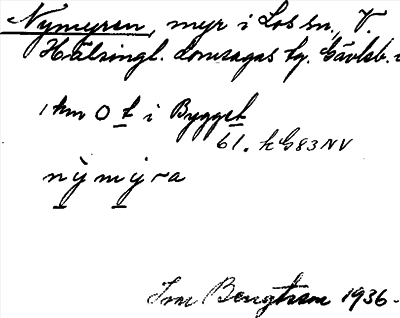 Nymyren, myr i Los sn, V.
Hälsingl. domsagas tg. Gävleb. l
1 km O t i Bygget
61. h G83NV
nỳmýra
Bengtsson 1936.